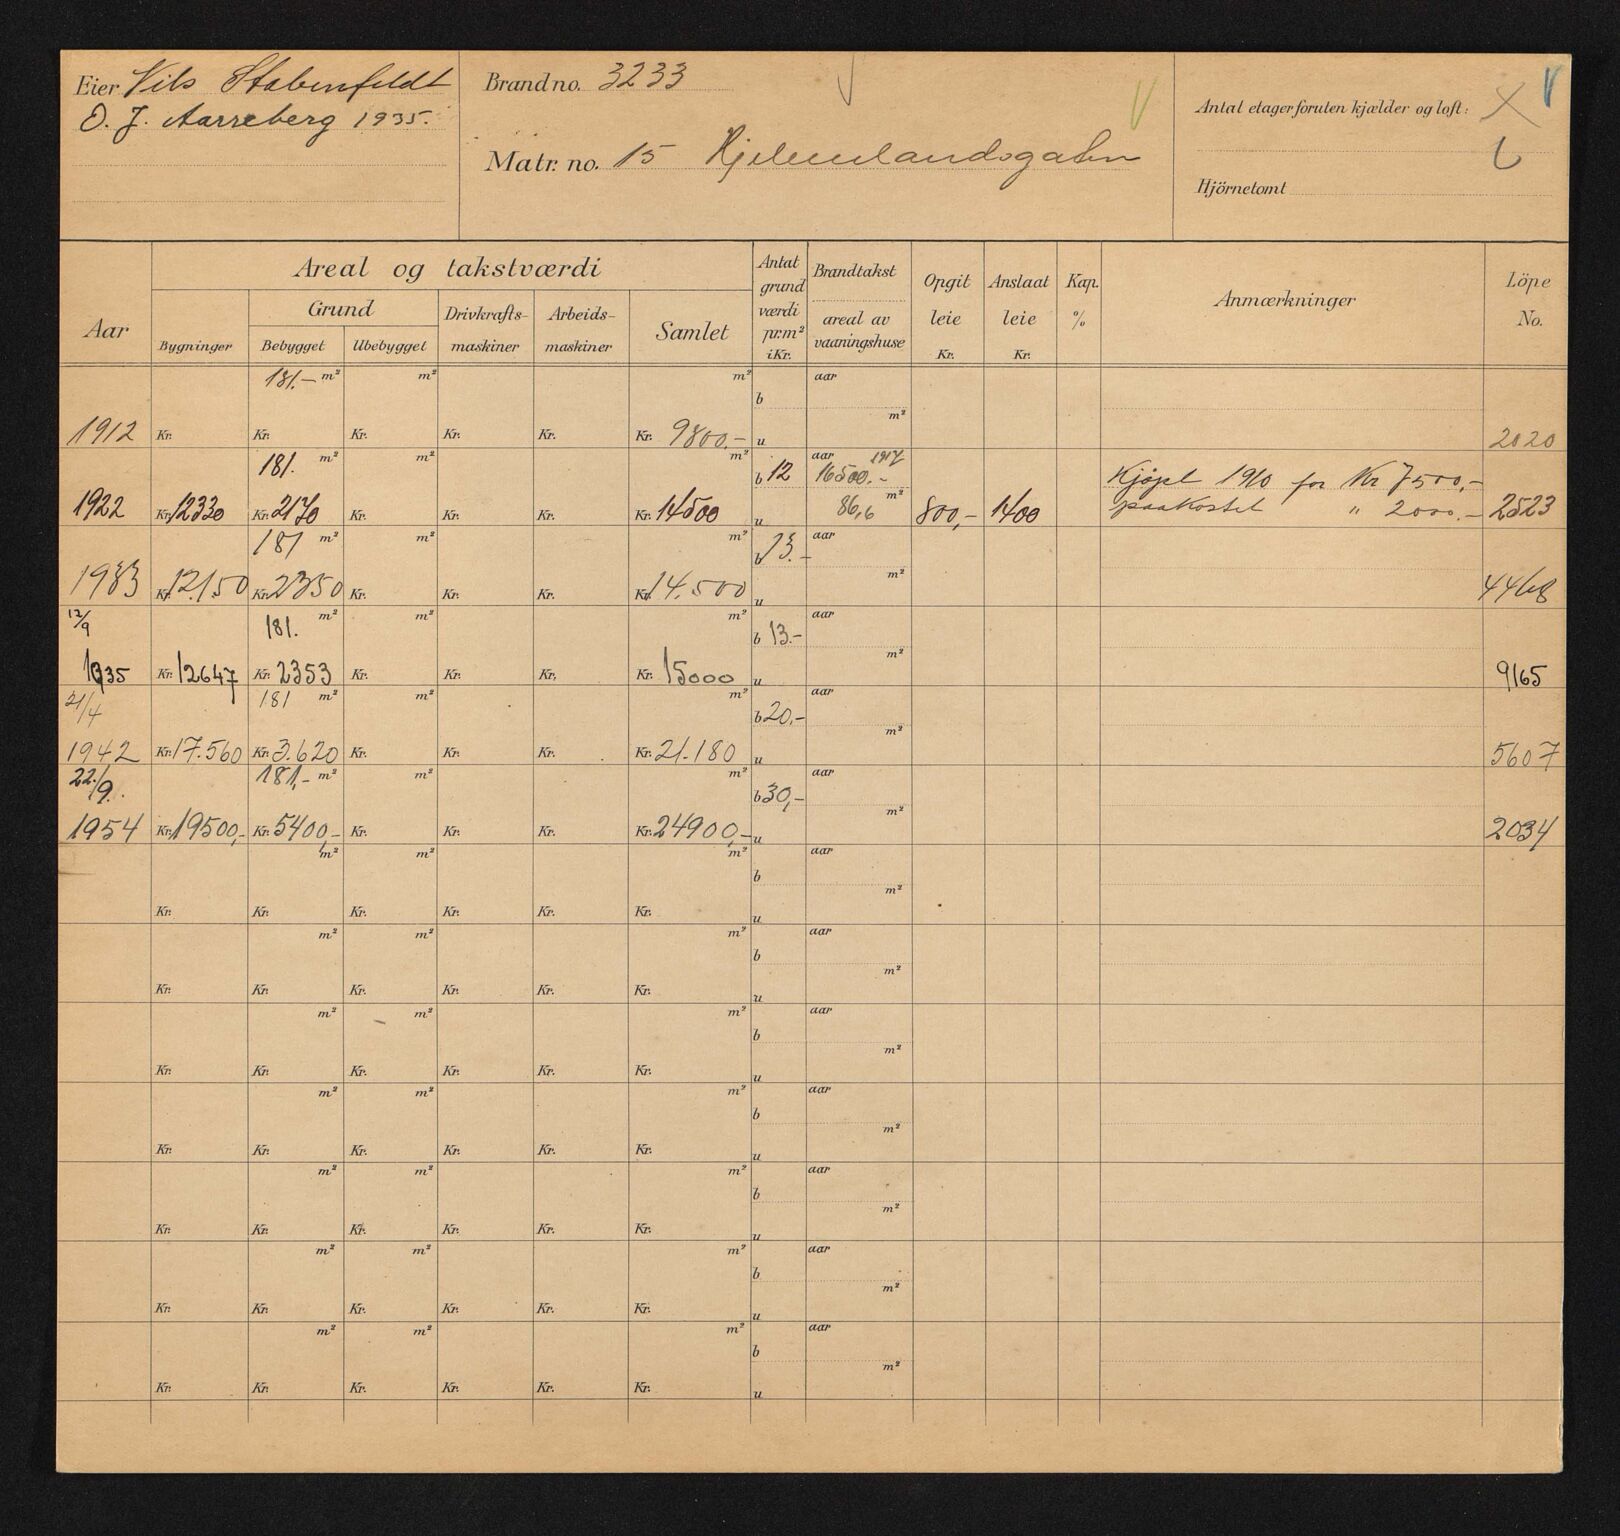 Eier Nils Stabenfeldt
O. J. Aarreberg 1935.
Brand no. 3233
Matr. no. 15 Hjelmelandsgaten
Antal etager foruten kjælder og loft:
Hjörnetomt
Aar
Areal og takstværdi
Bygninger
Grund
Bebygget
Ubebygget
Drivkrafts-
maskiner
Arbeids-
maskiner
Samlet
Antat
grund
værdi
pr. m²
i Kr.
Brandtakst
areal av
vaaningshuse
Opgit
leie
Kr.
Anslaat
leie
Kr.
Kap.
%
Anmærkninger
Löpe
No.
181.- m² m² m² aar
b
m²
1912 Kr. Kr. Kr. Kr. Kr. Kr. 9800,- u 2020
181. m² m² m² b 12 aar 1917 16500.-
Kjöpt 1910 for Kr 7500,-
paakostet " 2000.-
1922 Kr. 12330 Kr. 2170 Kr. Kr. Kr. Kr. 14500 u 86,6 m² 800,- 1400 2523
181 m² m² m² b 13.- aar
m²
1933 Kr. 12.150 Kr. 2350 Kr. Kr. Kr. Kr. 14.500 u 4468
12/9 181. m² m² m² b 13.- aar
m²
1935 Kr. 12647 Kr. 2353 Kr. Kr. Kr. Kr. 15000 u 9165
21/4 181 m² m² m² b 20.- aar
m²
1942 Kr. 17.560 Kr. 3.620 Kr. Kr. Kr. Kr. 21.180 u 5607
22./9. 181,- m² m² m² b 30,- aar
m²
1954 Kr. 19500,- Kr. 5400,- Kr. Kr. Kr. Kr. 24900,- u 2034
m² m² m² aar
b
m²
Kr. Kr. Kr. Kr. Kr. Kr. u
m² m² m² aar
b
m²
Kr. Kr. Kr. Kr. Kr. Kr. u
m² m² m² aar
b
m²
Kr. Kr. Kr. Kr. Kr. Kr. u
m² m² m² aar
b
m²
Kr. Kr. Kr. Kr. Kr. Kr. u
m² m² m² aar
b
m²
Kr. Kr. Kr. Kr. Kr. Kr. u
m² m² m² aar
b
m²
Kr. Kr. Kr. Kr. Kr. Kr. u
m² m² m² aar
b
m²
Kr. Kr. Kr. Kr. Kr. Kr. u